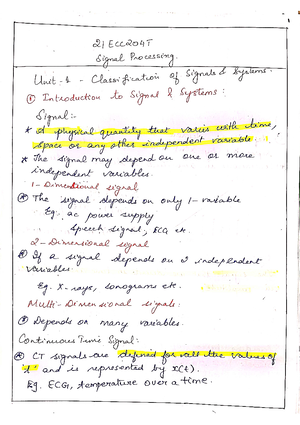 21ECC204T
Signal Processing.
Unit-1 - Classification of Signals & Systems.
① Introduction to Signal & Systems:
Signal:-
* A physical quantity that varies with time,
space or any other independent variable
* The signal may depend on one or more
independent variables.
1-Dimentional signal
* The signal depends on only 1-variable
Eg: ac power supply
speech signal, ECG etc.
2-Dimensional signal
* If a signal depends on 2 independent
variables.
Eg. X-rays, sonograms etc.
Multi-Dimensional signals:
* Depends on many variables.
Continuous Time Signal:
* CT signals are defined for all the values of
't' and is represented by x(t).
Eg. ECG, temperature over a time.